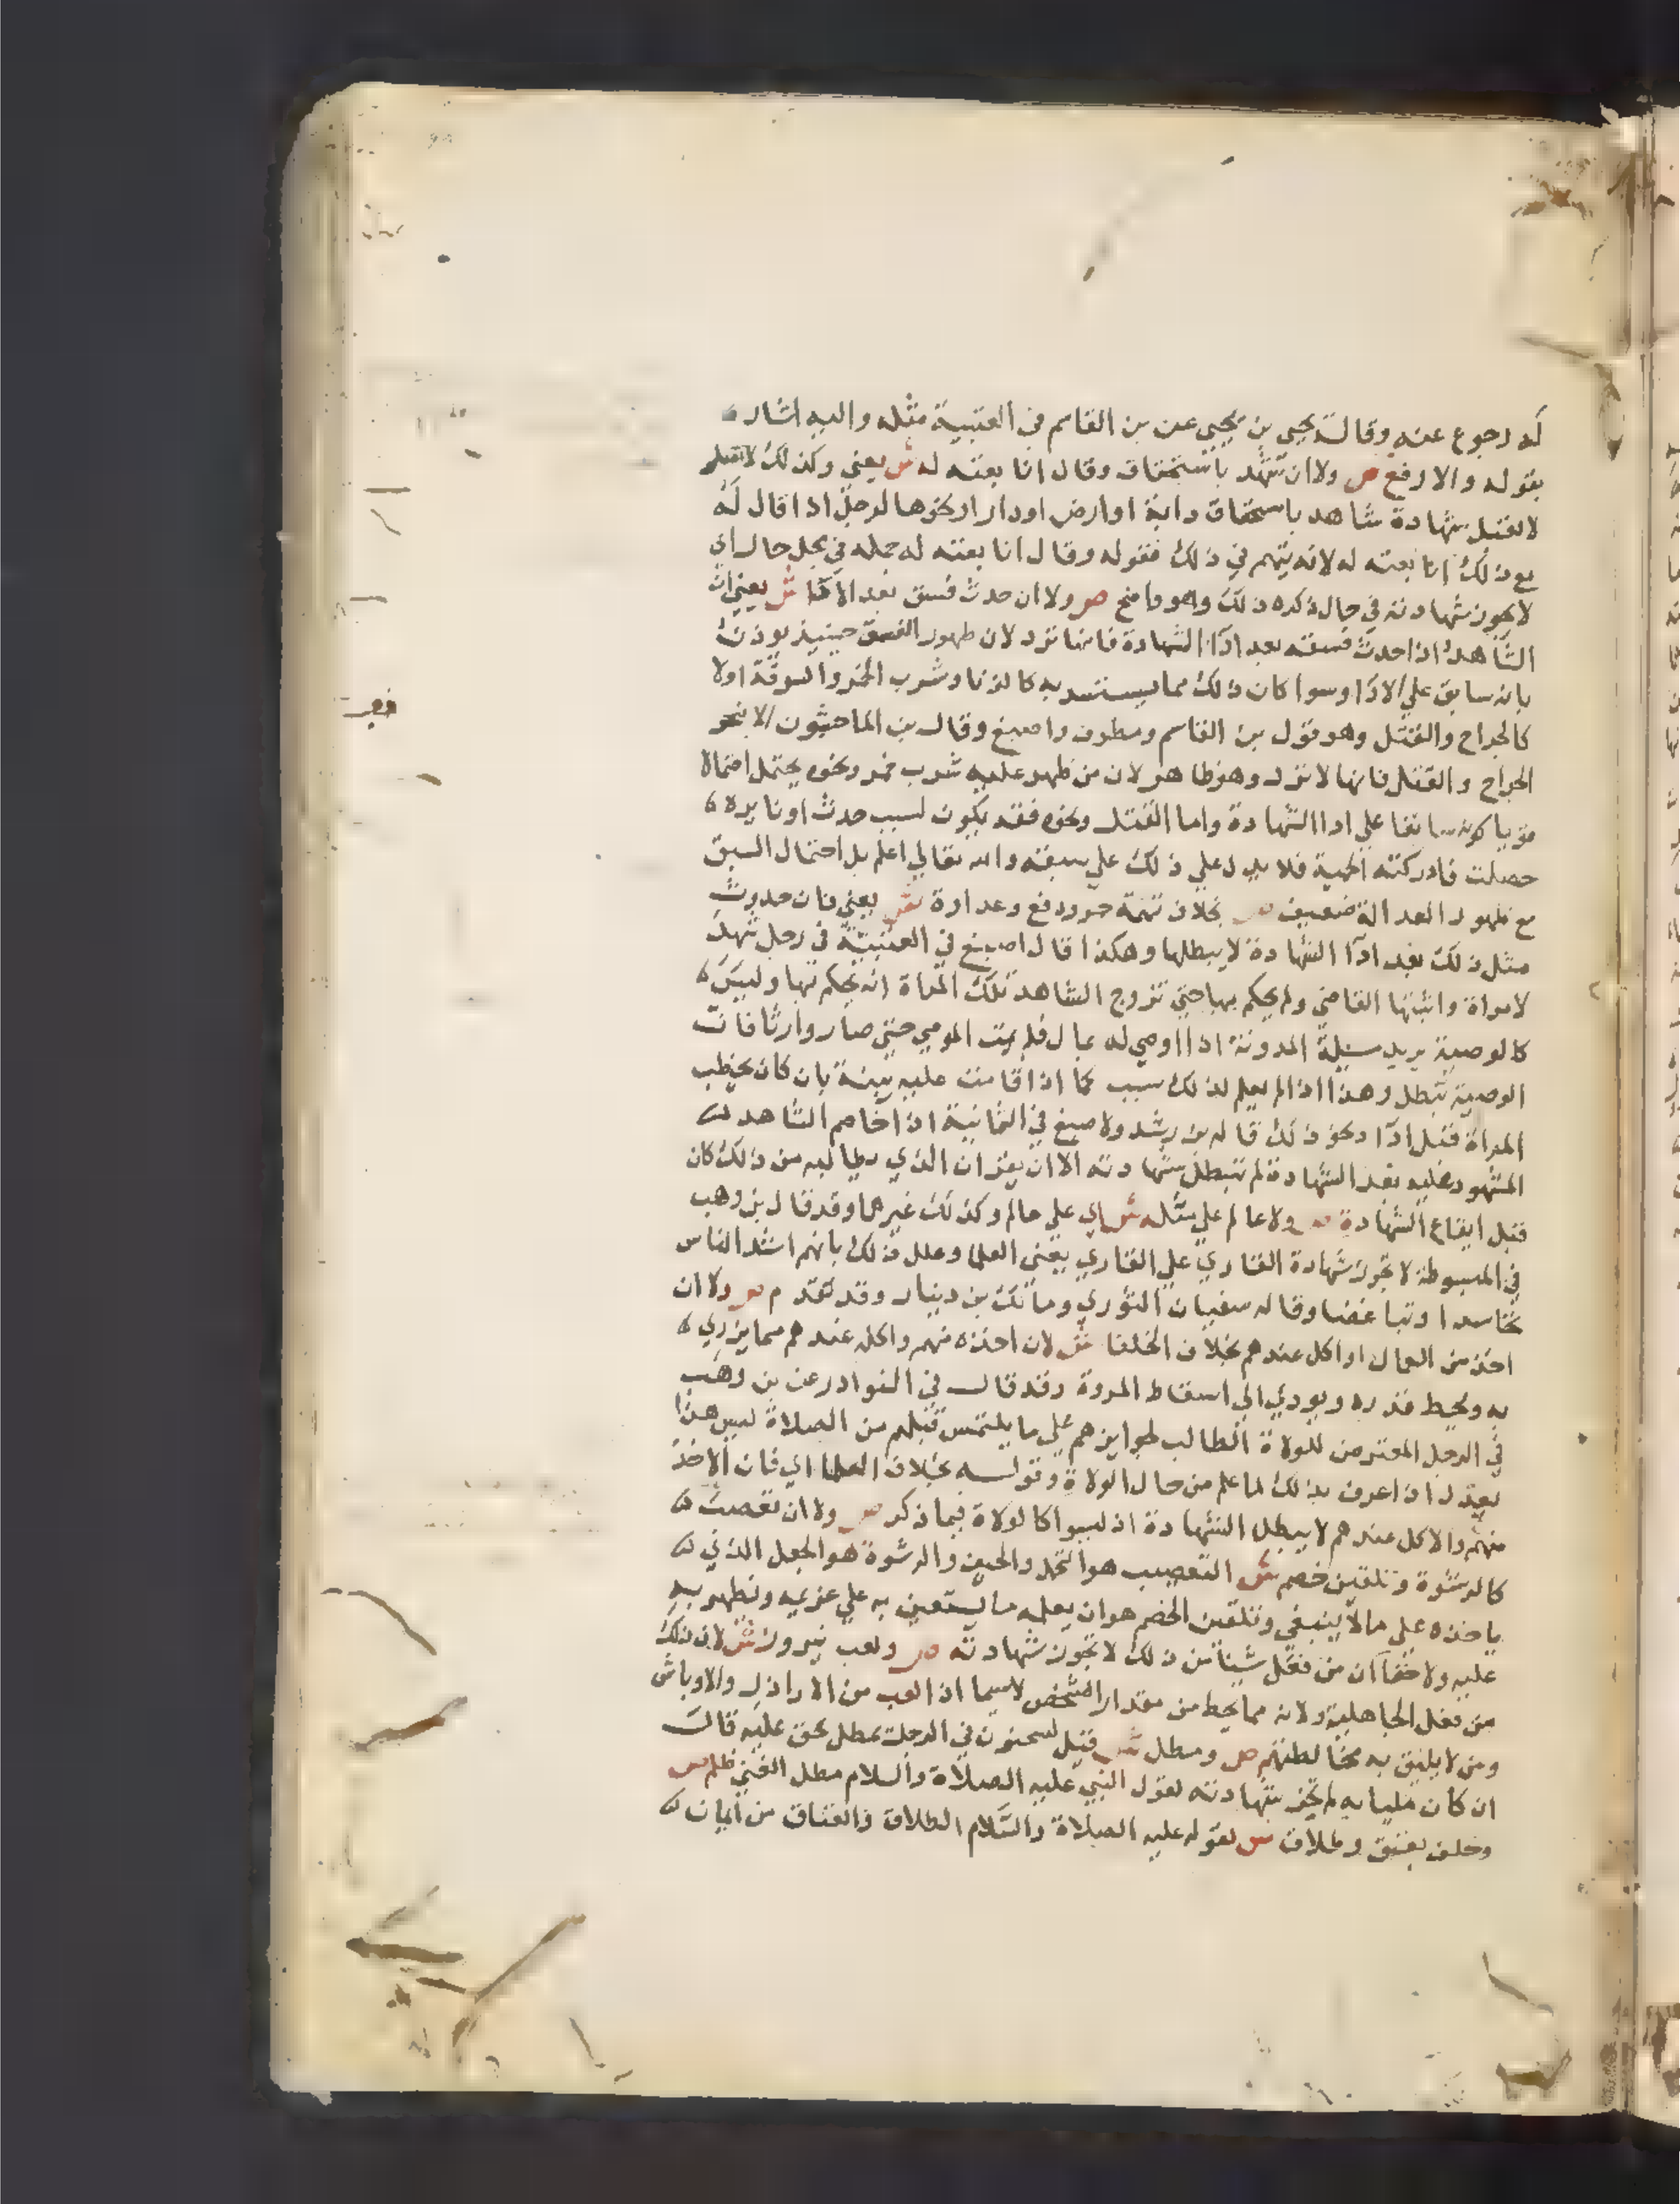 له رجوع عنه وقال يحيى بن يحيى عن بن القاسم في العتبية مثله واليه اشار
بقوله والا رفع ص ولا ان شهد باستحقاق وقال انا بعته له ش يعني وكذلك لا تقبل
لا تقبل شهادة شاهد باستحقاق دابة او ارض او دار او نحوها لرجل اذا قال له
مع ذلك انا بعته له لانه يتهم في ذلك فقوله وقال انا بعته له جمله في محل حال اي
لا يجوز شهادته في حال ذكره ذلك وهو واضح ص ولا ان حدث فسق بعد الادا ش يعني ان
الشاهد اذا حدث فسقه بعد ادا الشهادة فانها ترد لان ظهور الفسق حينيذ يوذن
بانه سابق علي الادا وسوا كان ذلك مما يستسر به كالزنا وشرب الخمر والسرقة اولا
كالجراح والقتل وهو قول بن القاسم ومطرف واصبغ وقال بن الماجشون الا نحو
الجراح والقتل فانها لا ترد وهو ظاهر لان من ظهر عليه شرب خمر ونحوه يحتمل احتمالا
قويا كونه سابقا علي ادا الشهادة واما القتل ونحوه فقد يكون لسبب حدث او نايره
حصلت فادركته الحمية فلا يدل علي ذلك علي سبقته والله تعالي اعلم بل احتمال السبق
مع ظهور العدالة ضعيف ص بخلاف تهمة جر ودفع وعداوة ش يعني فان حدوث
مثل ذلك بعد ادا الشهادة لا يبطلها وهكذا قال اصبغ في العتبية في رجل شهد
لامراة واثبتها القاضي ولم يحكم بها حتي تزوج الشاهد تلك المراة انه يحكم بها وليس
كالوصية يريد مسيلة المدونة اذا اوصي له بمال فلم يمت الموصي حتي صار وارثا فان
الوصية تبطل وهذا اذا لم يعلم لذلك سبب كما اذا قامت عليه بينة بان كان يخطب
المراة قبل ادا ونحو ذلك قاله بن رشد ولاصبغ في الثمانية اذا خاصم الشاهد
المشهود عليه بعد الشهادة لم تبطل شهادته الا ان يقر ان الذي يطالبه من ذلك كان
قبل ايقاع الشهادة ص ولا عالم علي مثله ش اي علي عالم وكذلك غيرها وقد قال بن وهب
في المبسوطة لا تجوز شهادة القاري علي القاري يعني العلما وعلل ذلك بانهم اشد الناس
تحاسدا وتباغضا وقاله سفيان الثوري ومالك بن دينار وقد تقدم ص ولا ان
اخذ من العمال او اكل عندهم بخلاف الخلفا ش لان اخذه منهم واكله عندهم مما يزري
به ويحيط قدره ويودي الي اسقاط المروة وقد قال في النوادر عن بن وهب
في الرجل المعترض للولاة الطالب لجوايزهم علي ما يلتمس قبلهم من الصلاة ليس هذا
بعدل اذا عرف بذلك لما علم من حال الولاة وقوله بخلاف الخلفا اي فان الاخذ
منهم والاكل عندهم لا يبطل الشهادة اذ ليسوا كالولاة فيما ذكر ص ولا ان تعصب
كالرشوة وتلقين خصم ش التعصب هو والرشوة هو الجعل الذي
ياخذه علي ما لا ينبغي وتلقين الخصم هو ان يعلمه ما يستعين به علي غريمه ونظهر به
عليه ولا خفا ان من فعل شيا من ذلك لا تجوز شهادته ص ولعب نيروز ش لان ذلك
من فعل الجاهلية ولانه مما يحط من مقدار الشخص لا سيما اذا لعب من الاراذل والاوباش
ومن لا يليق به مخالطتهم ص ومطل ش قيل لسحنون في الرجل يمطل بحق عليه قال
ان كان مليا به لم تجز شهادته لقول النبي عليه الصلاة والسلام مطل الغني ظلم ص
وحلف بعتق وطلاق ش لقوله عليه الصلاة والسلام الطلاق والعتاق من ايمان